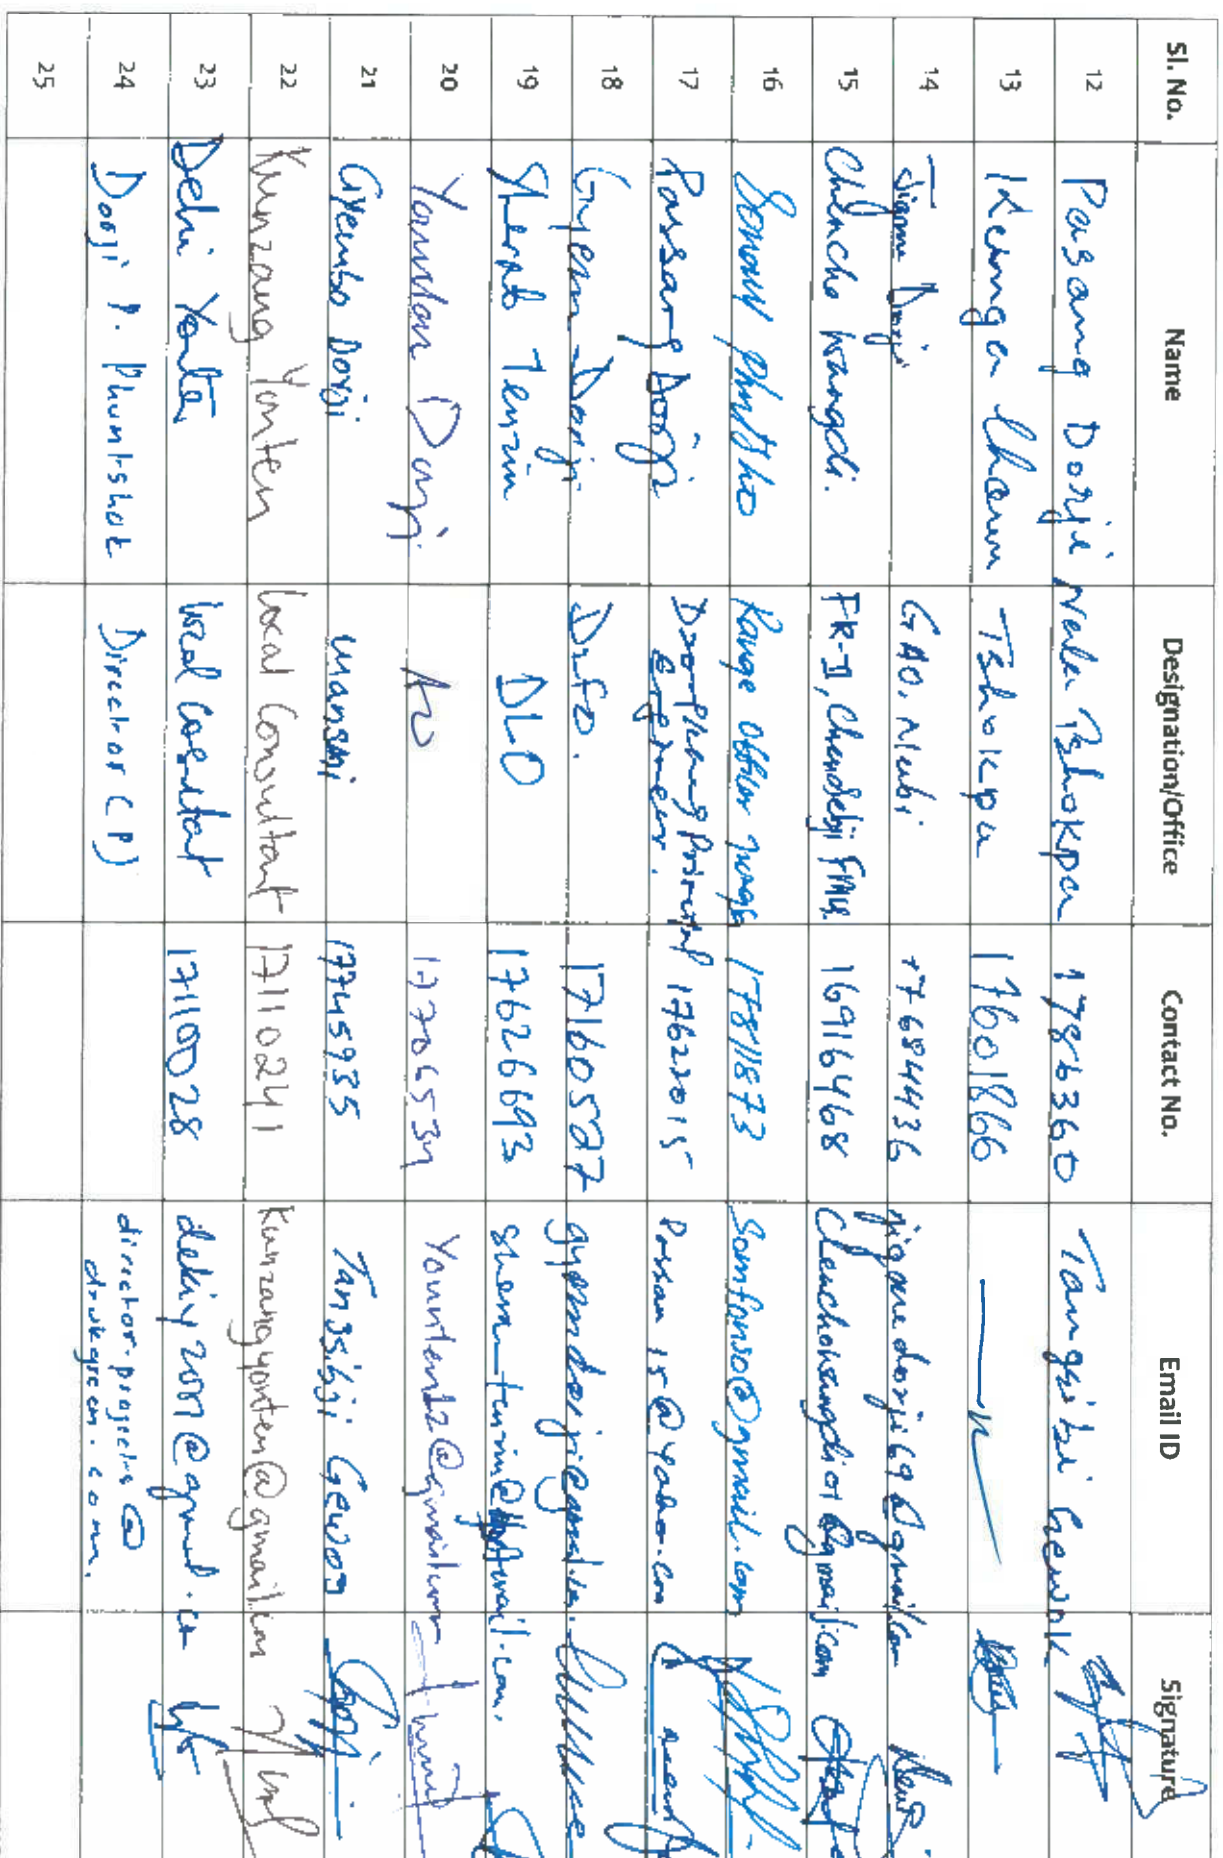 Sl. No. Name Designation/Office Contact No. Email ID Signature
12 Pasang Dorji Nela Tshokpa 17863360 Tangsibi Gewok
13 Kenga Cham Tshokpa 17601866
14 Jigme Dorji GAO, Nubi 17684436 jigmedorji69@gmail.com
15 Chencho Wangdi. FR-II, Chendebji FMU. 16916468 chenchowangdi01@gmail.com
16 Sonam Phuntsho Range Officer 17811873 Somfonso@gmail.com
17 Passang Dorji Principal 17622015 Passan15@yahoo.com
Engineer.
18 Gyem Dorji DzFO. 17160527
19 Sherab Tenzin DLO 17626693
20 Yonten Dorji 17706534 Younten12@gmail.com
21 Gyembo Dorji Mangmi 17745935 Tangsibji Gewog
22 Kunzang Yonten Local Consultant 17110241 Kunzangyonten@gmail.com
23 Deki Yonten Local 17110028
24 Dorji P. Phuntshok Director (P) director.projects@
drukgreen.com.
25